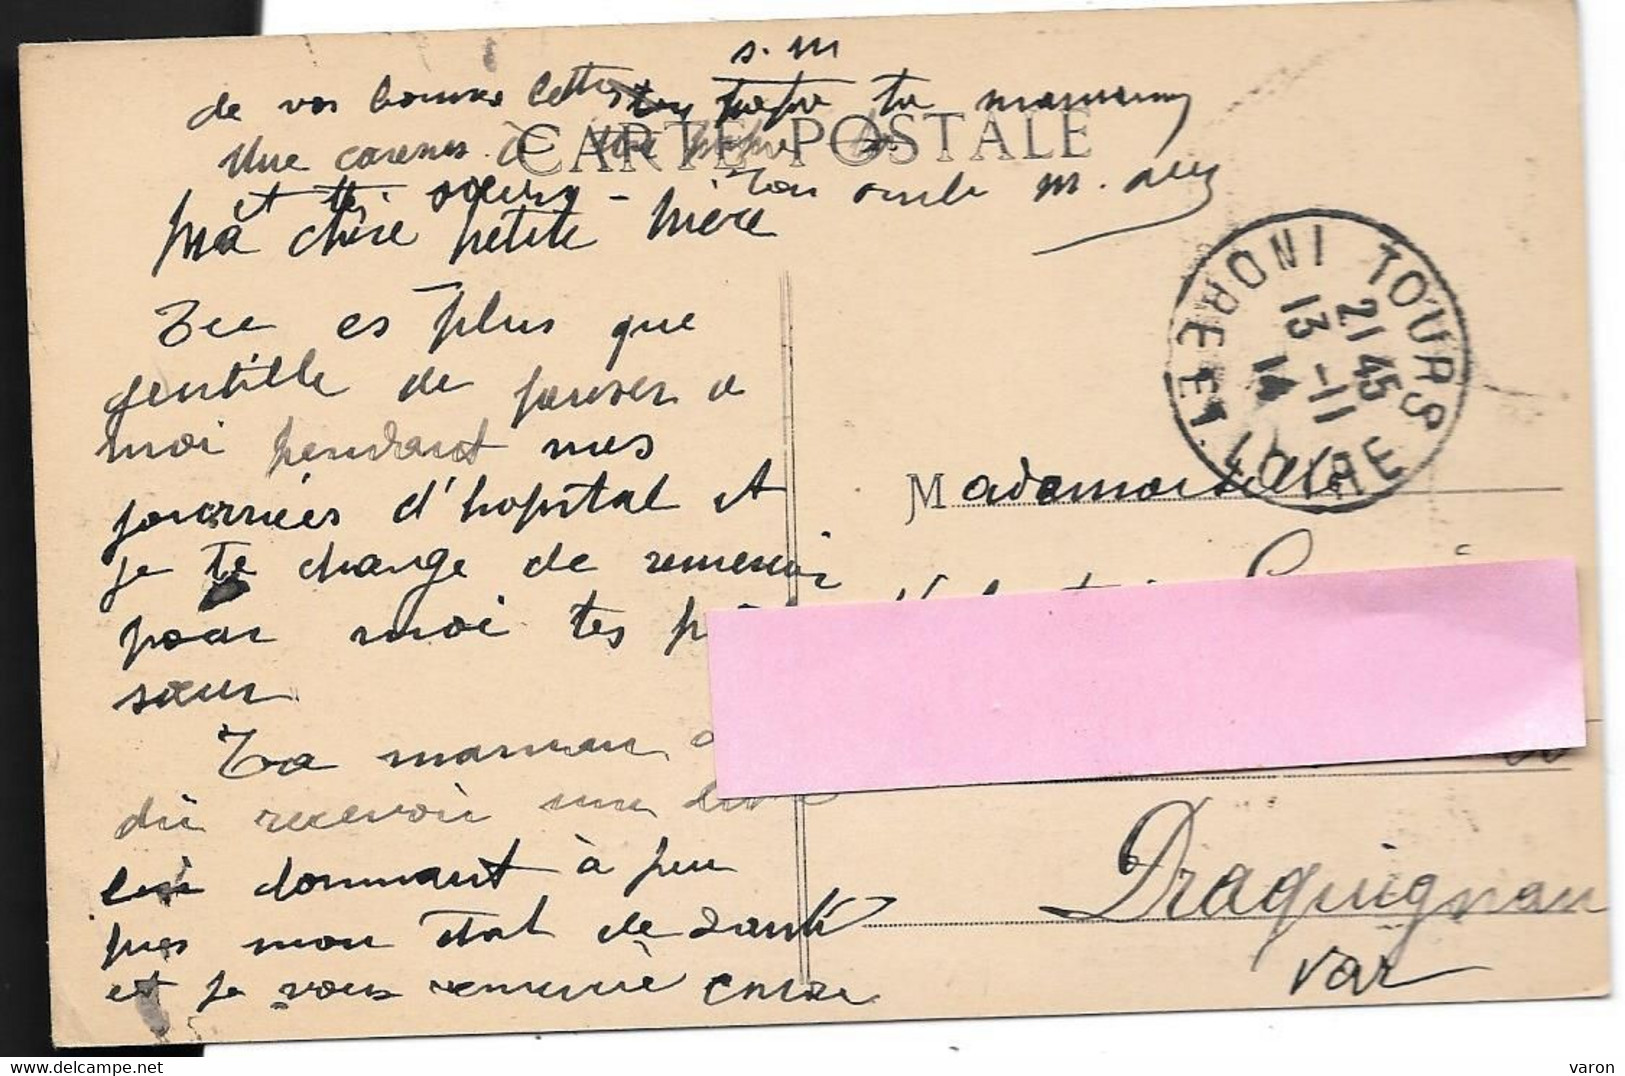 s.m
de vos bonnes lettres ta maman
Une caresse à
CARTE POSTALE
et tes soeurs – Ton oncle m.
Ma chère petite nièce
Tu es plus que
gentille de penser a
moi pendant mes
journées d'hopital et
je te charge de remercier
pour moi tes
sœur
Ta maman
dû recevoir une
lui donnant à peu
pres mon état de santé
et je vous remercie encore
TOURS
INDRE ET LOIRE
21 45
13 -11
14
Mademoiselle
Draguignan
Var
varon